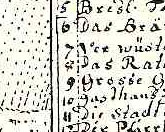 5 Bresl. T
6 Das Bra
7 Der wüst
8 Das Rat
9 Grosse G
10 Das haus
11 Die Stadt
Die Pfar